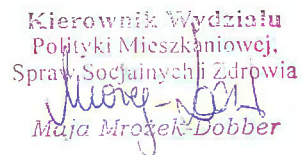 Kierownik Wydziału
Polityki Mieszkaniowej,
Spraw Socjalnych i Zdrowia
Maja Mrożek-Dobber